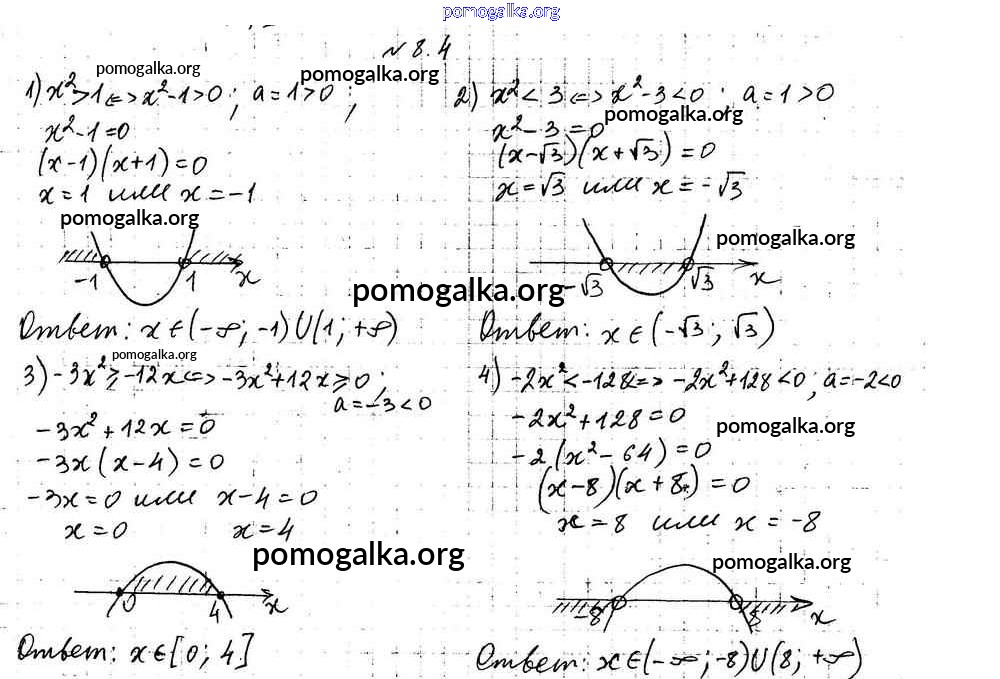 pomogalka.org
№ 8.4
pomogalka.org
pomogalka.org
1) x² > 1 <=> x² - 1 > 0 ; a = 1 > 0 ;
x² - 1 = 0
(x - 1)(x + 1) = 0
x = 1 или x = -1
pomogalka.org
-1 1 x
Ответ: x ∈ (-∞; -1) ∪ (1; +∞)
2) x² < 3 <=> x² - 3 < 0 ; a = 1 > 0
pomogalka.org
x² - 3 = 0
(x - √3)(x + √3) = 0
x = √3 или x = -√3
pomogalka.org
-√3 √3 x
pomogalka.org
Ответ: x ∈ (-√3; √3)
pomogalka.org
3) -3x² ≥ -12x <=> -3x² + 12x ≥ 0 ;
a = -3 < 0
-3x² + 12x = 0
-3x (x - 4) = 0
-3x = 0 или x - 4 = 0
x = 0 x = 4
pomogalka.org
0 4 x
Ответ: x ∈ [0; 4]
4) -2x² < -128 <=> -2x² + 128 < 0 ; a = -2 < 0
-2x² + 128 = 0
pomogalka.org
-2 (x² - 64) = 0
(x - 8)(x + 8) = 0
x = 8 или x = -8
pomogalka.org
-8 8 x
Ответ: x ∈ (-∞; -8) ∪ (8; +∞)